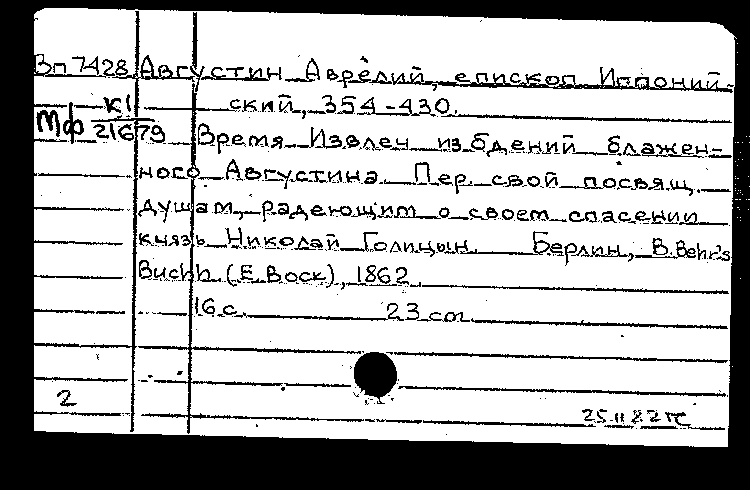 Вп 7428 Августин Аврелий, епископ Иппоний-
К1 ский, 354-430.
Мф 21679 Время Извлеч из бдений блажен-
ного Августина. Пер. свой посвящ.
душам, радеющим о своем спасении
князь Николай Голицын. Берлин, B. Behr's
Buchh. (E. Bock), 1862.
16 с. 23 см.
2
25 II 82